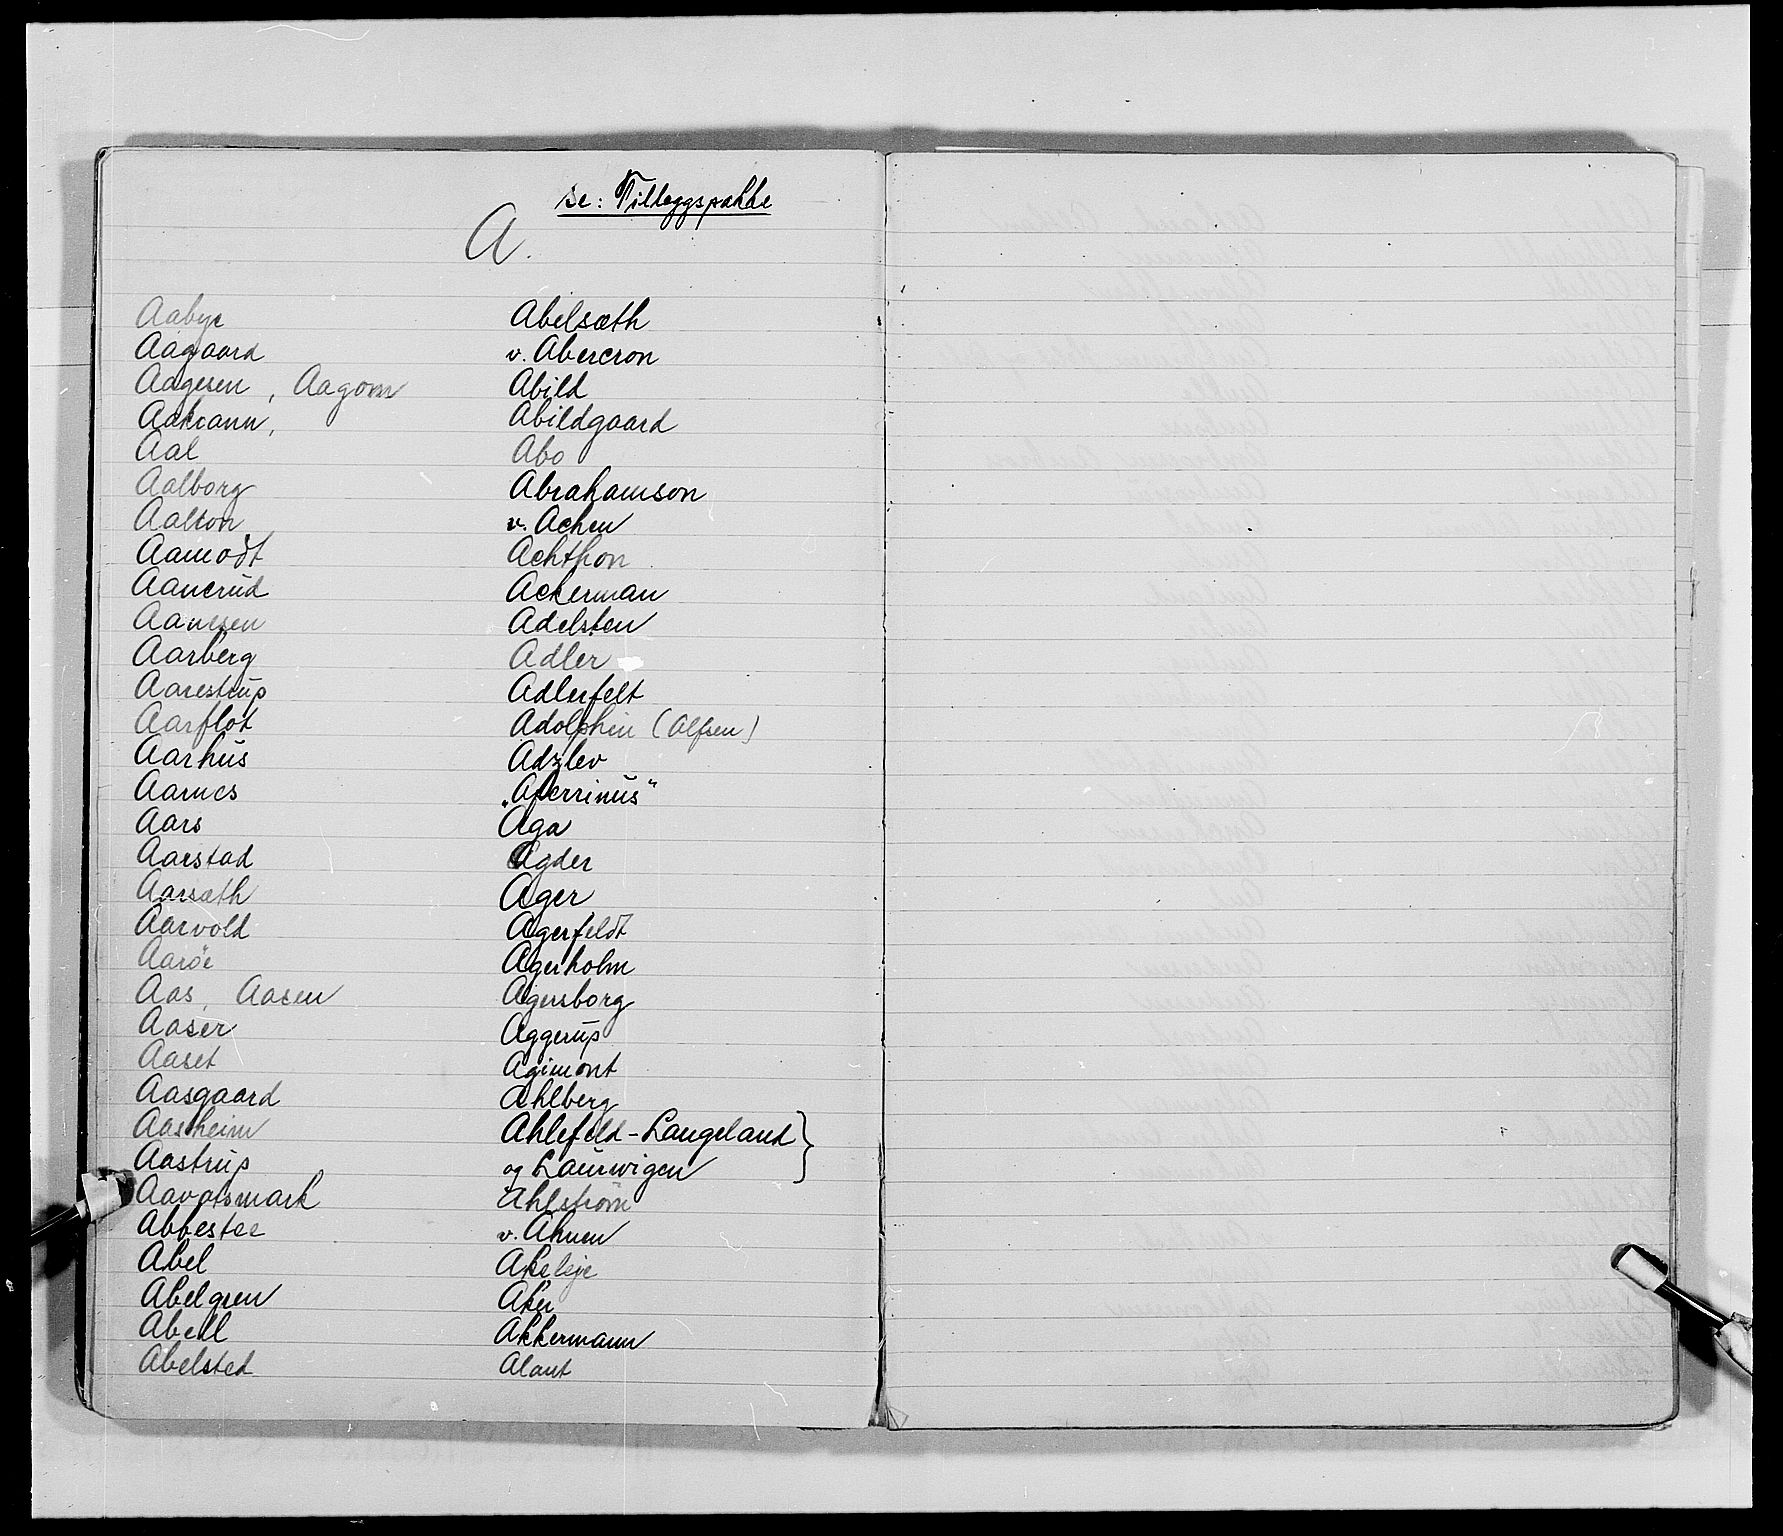 se: Tilleggspakke
A.
Aabye
Aagaard
Aagesen, Aagom
Aakrann,
Aal
Aalborg
Aalton
Aamodt
Aanerud
Aanesen
Aarberg
Aarestrup
Aarflot
Aarhus
Aarnes
Aars
Aarstad
Aarsæth
Aarvold
Aarøe
Aas, Aasen
Aaser
Aaset
Aasgaard
Aasheim
Aastrup
Aavatsmark
Abbestee
Abel
Abelgren
Abell
Abelsted
Abelsæth
v. Abercron
Abild
Abildgaard
Abo
Abrahamson
v. Achen
Achthon
Ackerman
Adelsten
Adler
Adlerfelt
Adolphin (Alfsen)
Adzlev
„Aferrinus“
Aga
Agder
Ager
Agerfeldt
Agerholm
Agersborg
Aggerup
Agimont
Ahlberg
Ahlefeld-Langeland }
og Laurwigen
Ahlstrøm
v. Ahnen
Akeleye
Aker
Akkermann
Alant